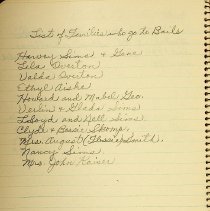 List of Families who go to Barls
Harvey Sims & Gene
Lela Overton
Valda Overton
Ethyl Aiske
Howard and Mabel Geo.
Verlin & Gleda Sims
Lloyd and Nell Sims
Clyde & Bessie Skomp
Mrs. August (Flossie Smith).
Nancy Sims
Mrs. John Kaiser